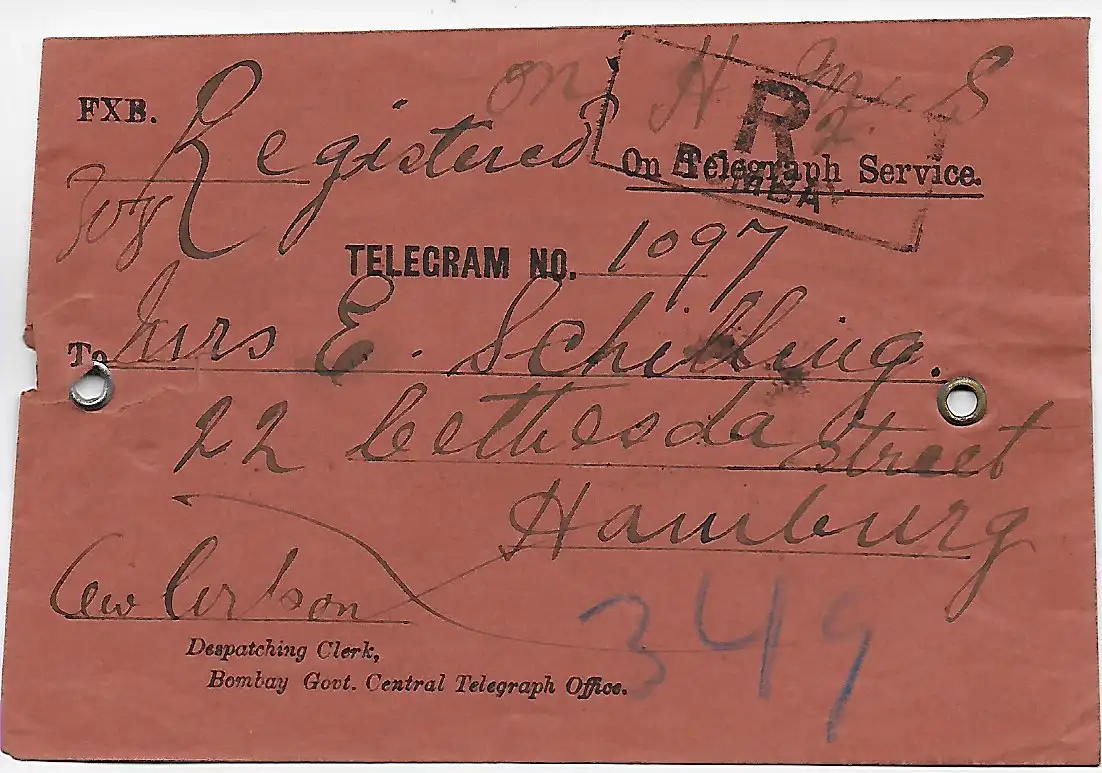 on H M S
FXB.
Registered
R
BOMBAY
On Telegraph Service.
TELEGRAM NO. 1097
To Mrs E. Schilling.
22 Bethesda Street
Hamburg
349
Despatching Clerk,
Bombay Govt. Central Telegraph Office.